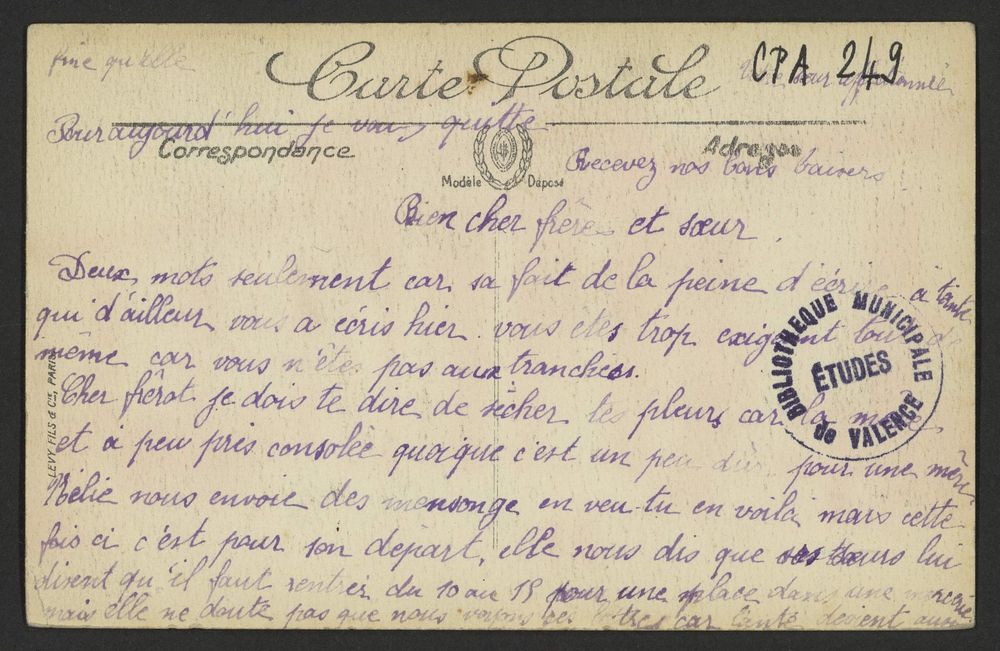 fine qu'elle
Carte Postale
CPA 249
Pour aujourd'hui je vous quitte
Correspondance
Adresse
Recevez nos bons baisers
Modèle Déposé
Bien cher frère et sœur.
Deux mots seulement car sa fait de la peine d'écrire à tante
qui d'ailleur vous a écris hier. vous êtes trop exigent tout de
même car vous n'êtes pas aux tranchées.
Cher frérot je dois te dire de sécher les pleurs car la
et à peu près consolée quoique c'est un peu dur pour une mère
nous envoie des mensonge en veu-tu en voilà mais cette
fois ci c'est pour son départ, elle nous dis que ses sœurs lui
disent qu'il faut rentrer du 10 au 15 pour une place dans une mercerie
mais elle ne doute pas que nous voyons ces lettres car devient aussi
LEVY FILS & Cie, PARIS
BIBLIOTHEQUE MUNICIPALE
ÉTUDES
de VALENCE